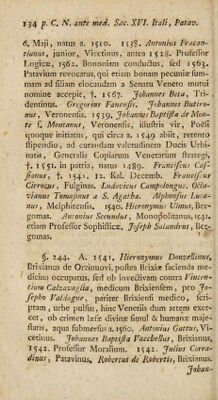 194 p. C. N. ante med. Sec. XVI. Itali, Patav.
6. Maji, natus a. 1510. 1538. Antonius Fracan-
tianus, junior, Vicetinus, antea 1528. Professor
Logicæ, 1562. Bononiam conductus, sed 1563.
Patavium revocatus, qui etiam bonam pecuniæ sum-
mam ad filiam elocandam a Senatu Veneto mutui
nomine accepit, † 1567. Johannes Beta, Tri-
dentinus. Gregorius Fanensis. Johannes Butiro-
nus, Veronensis. 1539. Johannes Baptista de Mon-
te s. Montanus, Veronensis, illustris vir, Posti
quoque initiatus, qui circa a. 1549 abiit, retento
stipendio, ad curandam valetudinem Ducis Urbi-
natis, Generalis Copiarum Venetarum strategi,
† 1551. in patria, natus 1489. Franciscus Cas-
sianus, † 1541. 12. Kal. Decemb. Franciscus
Cirrocus, Fulginas. Ludovicus Campolongus. Octa-
vianus Tomasinus a S. Agatha. Alphonsus Luca-
nus, Melphitensis. 1540. Hieronymus Ulmus, Ber-
gomas. Antonius Secundus, Monopolitanus, 1541.
etiam Professor Sophisticæ, Joseph Salandrus, Ber-
gomas.
§. 244. A. 1541. Hieronymus Donzellinus,
Brixianus de Orzinuovi, postea Brixiæ facienda me-
dicina occupatus, sed ob invectivam contra Vincen-
tium Calzavaglia, medicum Brixiensem, pro Jo-
sepho Valdagne, pariter Brixiensi medico, scri-
ptam, urbe pulsus, hinc Venetiis dum artem exer-
cet, ob crimen læsæ divinæ simul & humanæ maje-
statis, aqua submersus a. 1560. Antonius Gattus, Vi-
cetinus. Johannes Baptista Vacchellus, Brixianus,
1542. Professor Moralium. 1542. Julius Corra-
dinus, Patavinus, Robertus de Robertis, Brixianus.
Johan-